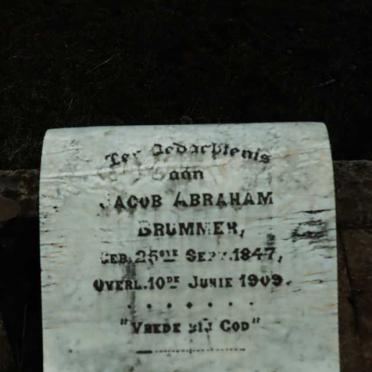 Ter Gedachtenis
aan
JACOB ABRAHAM
BRUMMER,
GEB. 25STE SEPT. 1847,
OVERL. 10DE JUNIE 1909.
"VREDE ZIJ GOD"